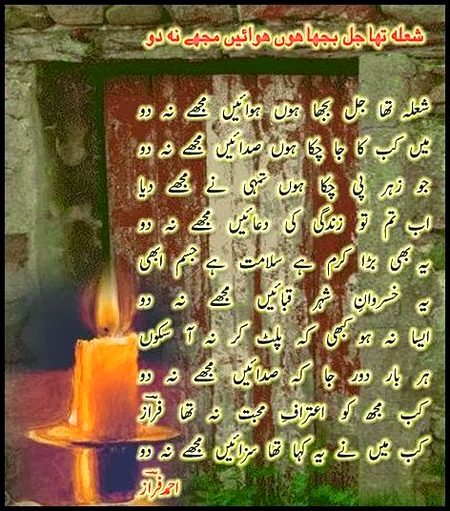 شعلہ تھا جل بجھا ھوں ھوائیں مجھے نہ دو
شعلہ تھا جل بجھا ہوں ہوائیں مجھے نہ دو
میں کب کا جا چکا ہوں صدائیں مجھے نہ دو
جو زہر پی چکا ہوں تمہی نے مجھے دیا
اب تم تو زندگی کی دعائیں مجھے نہ دو
یہ بھی بڑا کرم ہے سلامت ہے جسم ابھی
یہ خسروانِ شہر قبائیں مجھے نہ دو
ایسا نہ ہو کبھی کہ پلٹ کر نہ آ سکوں
ہر بار دور جا کہ صدائیں مجھے نہ دو
کب مجھ کو اعترافِ محبت نہ تھا فرازؔ
کب میں نے یہ کہا تھا سزائیں مجھے نہ دو
احمد فرازؔ